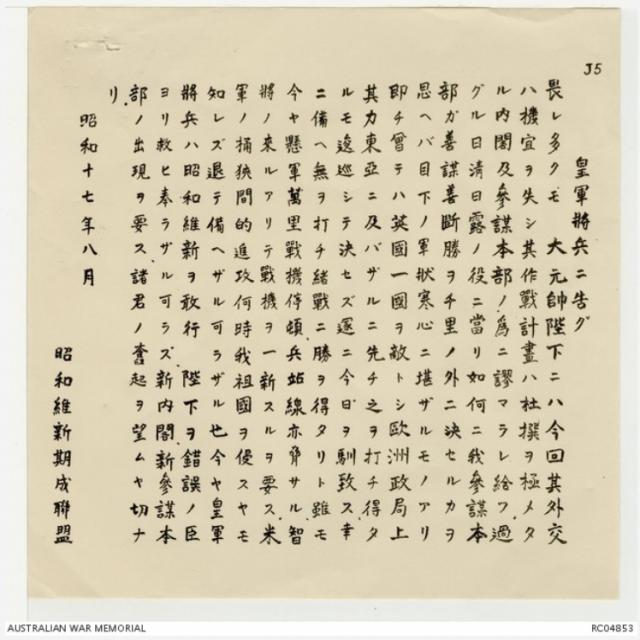 J5
皇軍將兵ニ告グ
畏レ多クモ　大元帥陛下ニハ今回其外交
ハ機宜ヲ失シ其作戰計畫ハ杜撰ヲ極メタ
ル内閣及參謀本部ノ爲ニ謬マラレ給フ過
グル日清日露ノ役ニ當リ如何ニ我參謀本
部ガ善謀善斷勝ヲ千里ノ外ニ決セルカヲ
思ヘバ目下ノ軍狀寒心ニ堪ザルモノアリ
即チ曾テハ英國一國ヲ敵トシ歐洲政局上
其力東亞ニ及バザルニ先チ之ヲ打チ得タ
ルモ逡巡シテ決セズ遂ニ今日ヲ馴致ス幸
ニ備ヘ無ヲ打チ緒戰ニ勝ヲ得タリト雖モ
今ヤ懸軍萬里戰機停頓兵站線亦脅サル智
將ノ來ルアリテ戰機ヲ一新スルヲ要ス米
軍ノ桶狹間的進攻何時我祖國ヲ侵スヤモ
知レズ退テ備ヘザル可ラザル也今ヤ皇軍
將兵ハ昭和維新ヲ敢行　陛下ヲ錯誤ノ臣
ヨリ救ヒ奉ラザル可ラズ新内閣新參謀本
部ノ出現ヲ要ス諸君ノ奮起ヲ望ムヤ切ナ
リ
昭和十七年八月
昭和維新期成聯盟
AUSTRALIAN WAR MEMORIAL
RC04853